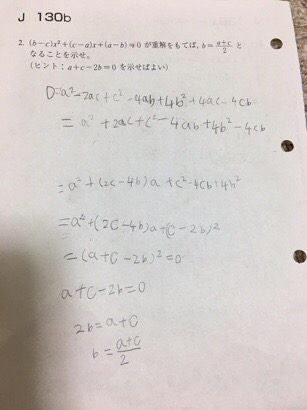 J 130b
2. (b-c)x²+(c-a)x+(a-b)=0 が重解をもてば, b=\frac{a+c}{2} と
なることを示せ。
(ヒント:a+c-2b=0 を示せばよい)
D=a²-2ac+c²-4ab+4b²+4ac-4cb
=a²+2ac+c²-4ab+4b²-4cb
=a²+(2c-4b)a+c²-4cb+4b²
=a²+(2c-4b)a+(c-2b)²
=(a+c-2b)²=0
a+c-2b=0
2b=a+c
b=\frac{a+c}{2}